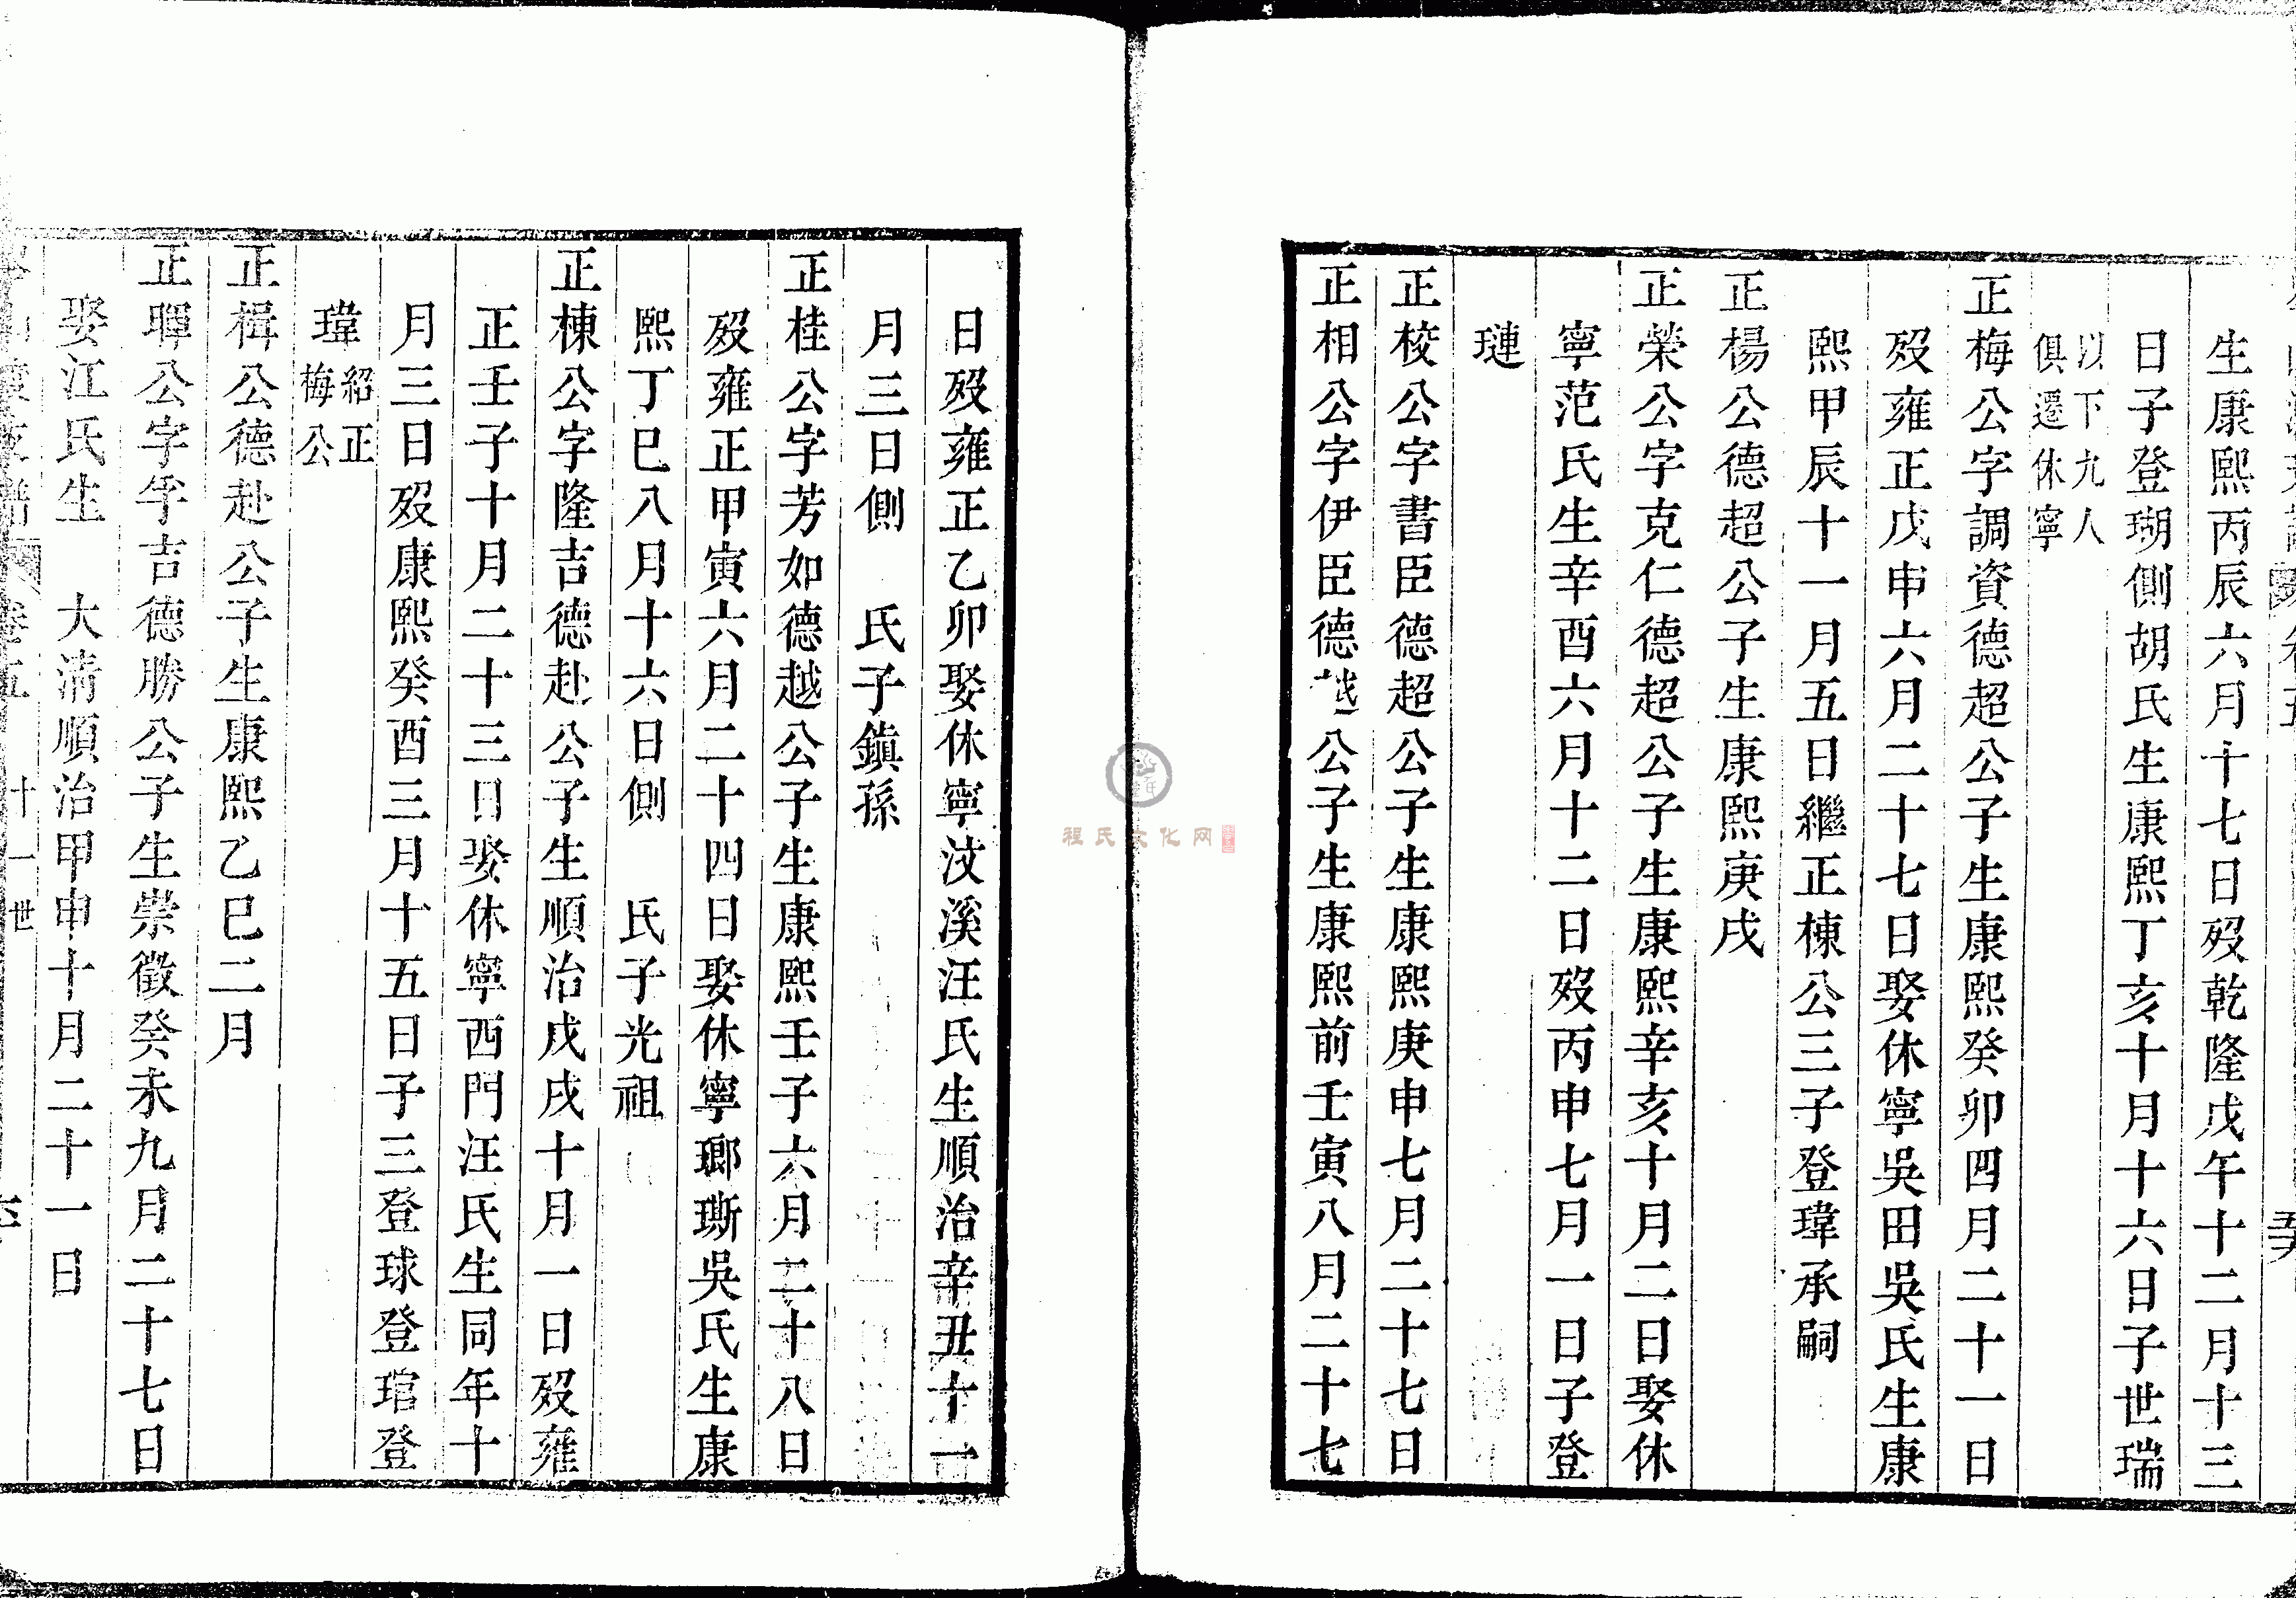 生康熙丙辰六月十七日歿乾隆戊午十二月十三
日子登瑚側胡氏生康熙丁亥十月十六日子世瑞
以下九人
俱遷休寧
正梅公字調資德超公子生康熙癸卯四月二十一日
歿雍正戊申六月二十七日娶休寧吳田吳氏生康
熙甲辰十一月五日繼正棟公三子登瑋承嗣
正楊公德超公子生康熙庚戌
正榮公字克仁德超公子生康熙辛亥十月二日娶休
寧范氏生辛酉六月十二日歿丙申七月一日子登
璉
正棱公字書臣德超公子生康熙庚申七月二十七日
正相公字伊臣德越公子生康熙前壬寅八月二十七
日歿雍正乙卯娶休寧汶溪汪氏生順治辛丑十一
月三日側 氏子鎮孫
正桂公字芳如德越公子生康熙壬子六月二十八日
歿雍正甲寅六月二十四日娶休寧瑯斯吳氏生康
熙丁巳八月十六日側 氏子光祖
正棟公字隆吉德赴公子生順治戊戌十月一日歿雍
正壬子十月二十三日娶休寧西門汪氏生同年十
月三日歿康熙癸酉三月十五日子三登球登琯登
瑋紹正梅公
正楫公德赴公子生康熙乙巳二月
正暉公字孚吉德勝公子生崇徵癸未九月二十七日
娶江氏生 大清順治甲申十月二十一日
卷五 十一世
程氏文化网